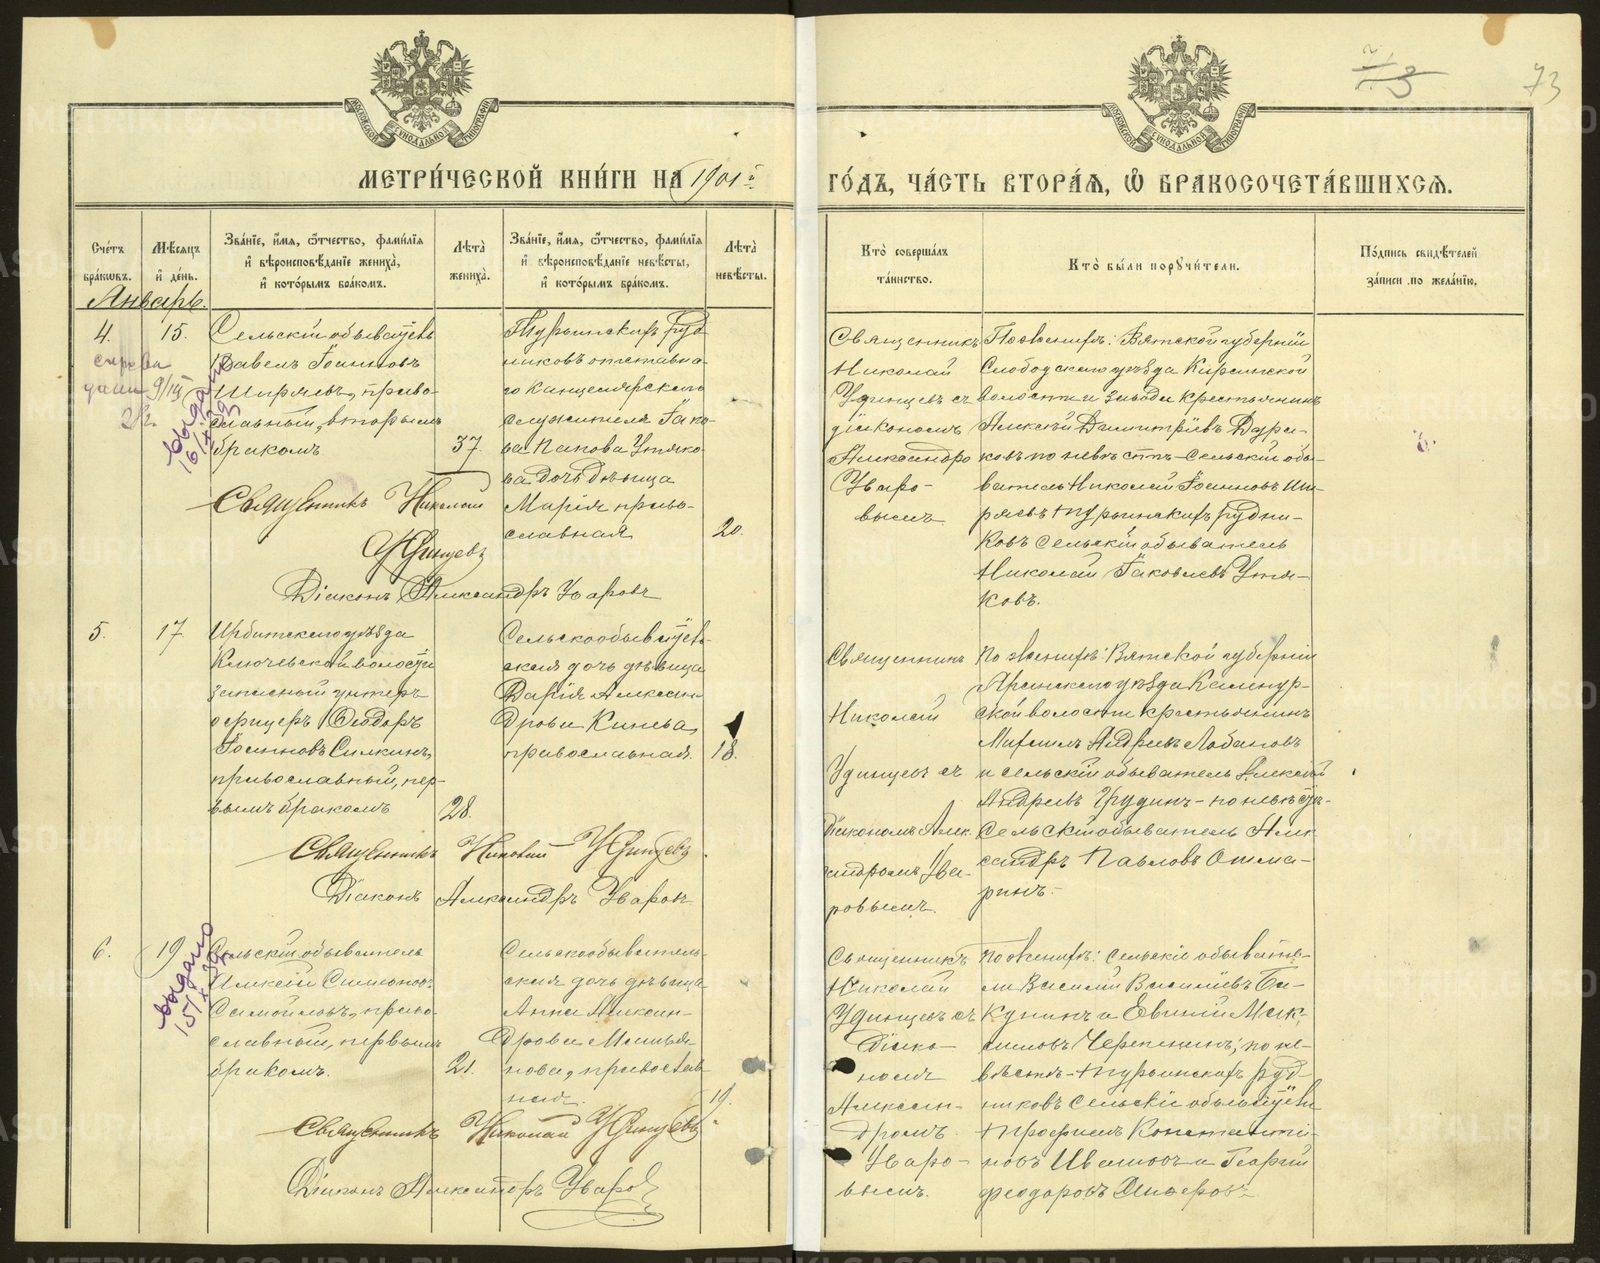 73
МЕТРИ́ЧЕСКОЙ КНИ́ГИ НА 1901й
ГО́ДЪ, ЧА́СТЬ ВТОРА́Я, Ѡ БРАКОСОЧЕТА́ВШИХСЯ.
Сче́тъ бра́ковъ.
Мѣ́сяцъ и де́нь.
Зва́нїе, и́мя, ѻ́тчество, фами́лїя
и вѣроисповѣ́данїе жениха̀,
и кото́рымъ бра́комъ.
Лѣта̀ жениха̀.
Зва́нїе, и́мя, ѻ́тчество, фами́лїя
и вѣроисповѣ́данїе невѣ́сты,
и кото́рымъ бра́комъ.
Лѣта̀ невѣ́сты.
Кто̀ соверша́лъ
та́инство.
Кто̀ бы́ли поручи́тели.
По́дпись свидѣ́телей
за́писи по жела́нїю.
Январь.
4.
15.
Сельскій обыватель
Павелъ Іоанновъ
Ширяевъ, право-
славный, вторымъ
бракомъ
37.
выдано
Турьинскихъ руд
никовъ отставна-
го канцелярскаго
служителя Іако-
ва Папова Утяко-
ва дочь дѣвица
Марія право-
славная
20.
Священникъ
Николай
Удинцевъ съ
діакономъ
Александро
Уваро-
вымъ
По женихѣ: Вятской губерніи
Слободскаго уѣзда Кирсинской
волости и завода крестьянинъ
Алексѣй Димитріевъ
по невѣстѣ - Сельскій обы-
ватель Николай Іоанновъ Ши-
ряевъ Турьинскихъ рудни-
ковъ сельскій обыватель
Николай Іаковлевъ Утя-
ковъ.
Священникъ Николай
Удинцевъ
Діаконъ Александръ Уваровъ
5.
17.
Ирбитскаго уѣзда
Ключевской волости
запасный унтеръ-
офицеръ Ѳеодоръ
Іоанновъ Силкинъ,
православный, пер-
вымъ бракомъ
28.
Сельскообыватель-
ская дочь дѣвица
Дарія Алексан-
дрова Кинева,
православная.
18.
Священникъ
Николай
Удинцевъ съ
діакономъ Алек-
сандромъ Ува-
ровымъ.
По женихѣ: Вятской губерніи
Яранскаго уѣзда
волости крестьянинъ
Михаилъ Андреевъ Лобановъ
и сельскій обыватель Алексѣй
Андреевъ Грудинъ - по невѣстѣ-
Сельскій обыватель Алек-
сандръ Павловъ Ошма-
ринъ.-
Священникъ Николай Удинцевъ
Діаконъ Александръ Уваровъ
6.
19
Сельскій обыватель
Алексій Симонов
Самойловъ, право-
славный, первымъ
бракомъ.
21.
выдано
Сельскообыватель-
ская дочь дѣвица
Анна Алексан-
дрова Мелья
нова, православ
ная.
19.
Священникъ
Николай
Удинцевъ съ
діако-
номъ
Алексан-
дромъ
Уваро-
вымъ.
По женихѣ: сельскіе обывате-
ли Василій Василіевъ Ба-
кунинъ и Евгеній Мак-
симовъ Черепанинъ; по не-
вѣстѣ - Турьинскихъ руд-
никовъ сельскіе обыватели
Трофимъ Константи-
новъ Ивановъ и Георгій
Феодоровъ
Священникъ Николай Удинцевъ
Діаконъ Александръ Уваровъ